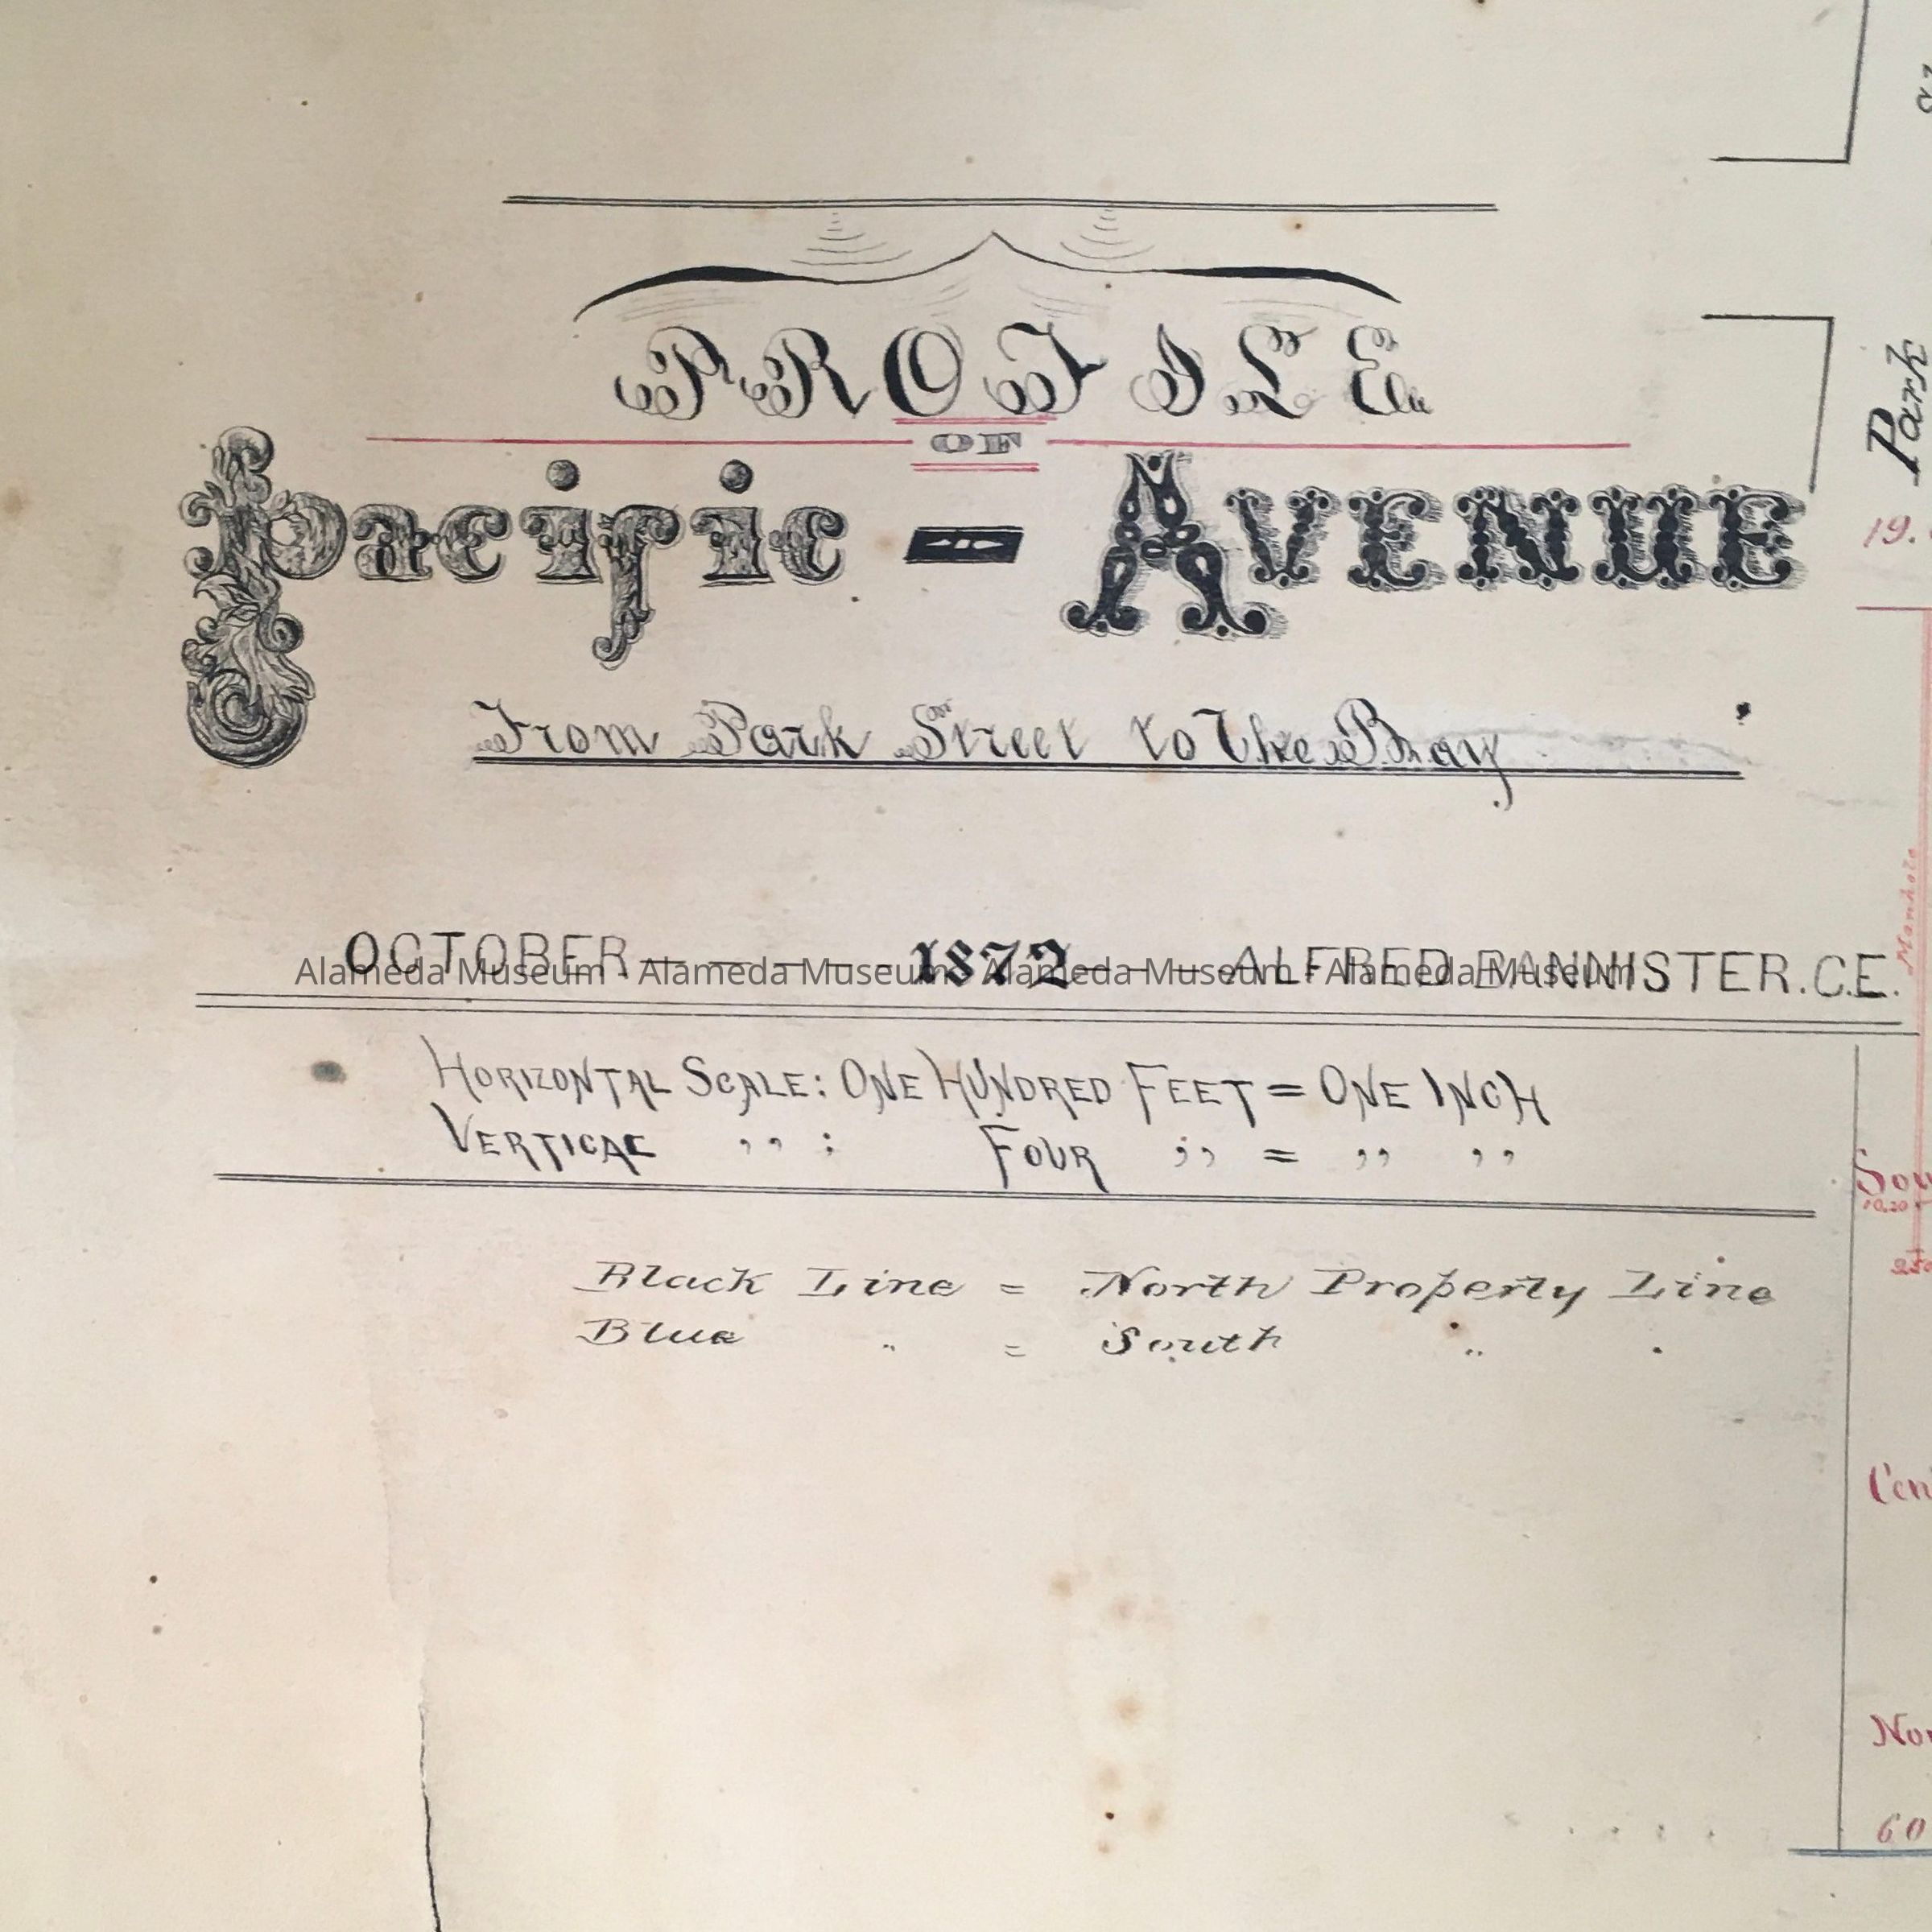 PROFILE
OF
Pacific - AVENUE
From Park Street to the Bay
OCTOBER - - - - 1872 - - - ALFRED. BANNISTER. C.E.
Alameda Museum - Alameda Museum - Alameda Museum - Alameda Museum
HORIZONTAL SCALE: ONE HUNDRED FEET = ONE INCH
VERTICAL ,, : FOUR ,, = ,, ,,
Black Line = North Property Line
Blue " = South " "
Park
19.
Manhole
10.20
60